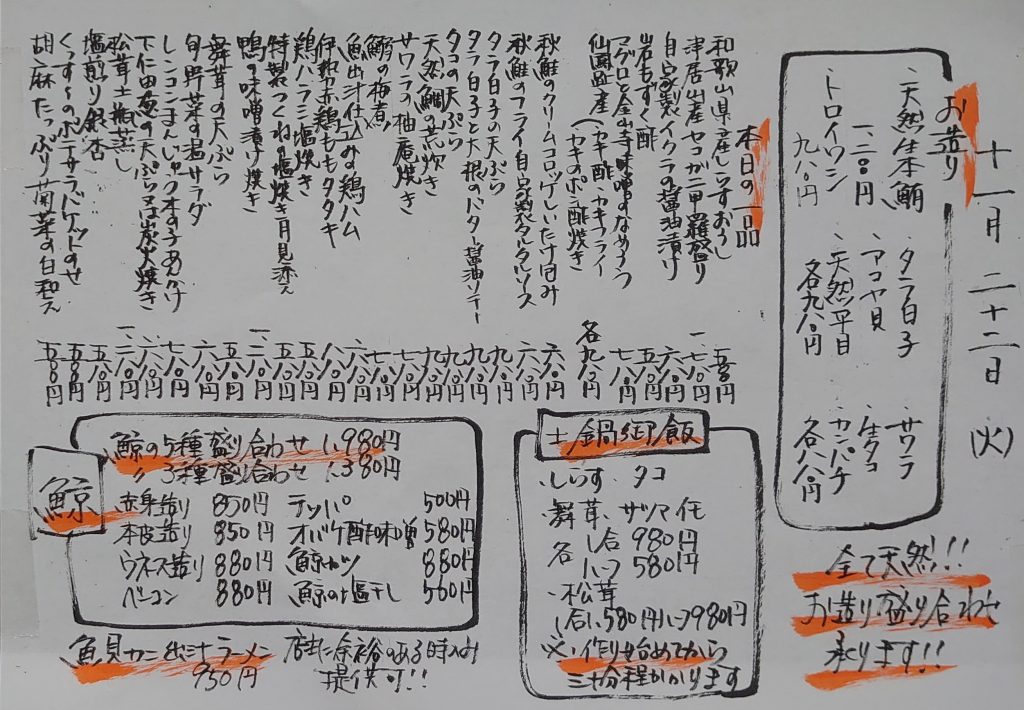 十一月二十二日（火）
お造り
天然生本鮪
一、二八〇円
トロイワシ
九八〇円
タラ白子
アコヤ貝
天然平目
各九八〇円
サワラ
生タコ
カンパチ
各八八〇円
全て天然!!
お造り盛り合わせ
承ります!!
本日の一品
和歌山県産しらすおろし 五八〇円
津居山産セコガニ甲羅盛り
自家製イクラの醤油漬け
岩もずく酢 五八〇円
マグロと金山寺味噌のなめろう
仙鳳趾産（カキ酢・カキフライ カキのポン酢焼き 各九八〇円
秋鮭のクリームコロッケしいたけ包み
秋鮭のフライ自家製タルタルソース
タラ白子の天ぷら 九八〇円
タラ白子と大根のバター醤油ソテー 九八〇円
タコの天ぷら
天然鯛の荒炊き
サワラの柚庵焼き
鰯の梅煮
魚出汁仕込みの鶏ハム
伊勢赤鶏ももタタキ
鶏ハラミ塩焼き
特製つくねの塩焼き月見添え
鴨の味噌漬け焼き
舞茸の天ぷら
旬野菜の温サラダ
レンコンまんじゅうキノコあんかけ
下仁田葱の天ぷら又は炭火焼き
松茸土瓶蒸し
塩煎り銀杏
くんせいのポテサラバゲットのせ
胡麻たっぷり菊菜の白和え 五八〇円
土鍋御飯
・しらす タコ
・舞茸、サツマイモ
各 1合 980円
ハーフ 580円
・松茸
1合1,580円ハーフ980円
※・作り始めてから
三十分程かかります
鯨
鯨の5種盛り合わせ 1,980円
〃 3種盛り合わせ 1,380円
赤身造り 850円 テッパ 500円
本皮造り 850円 オバケ酢味噌 580円
ウネス造り 880円 鯨カツ 880円
ベーコン 880円 鯨の塩干し 560円
魚貝カニ出汁ラーメン 店主に余裕のある時のみ
950円 提供可!!